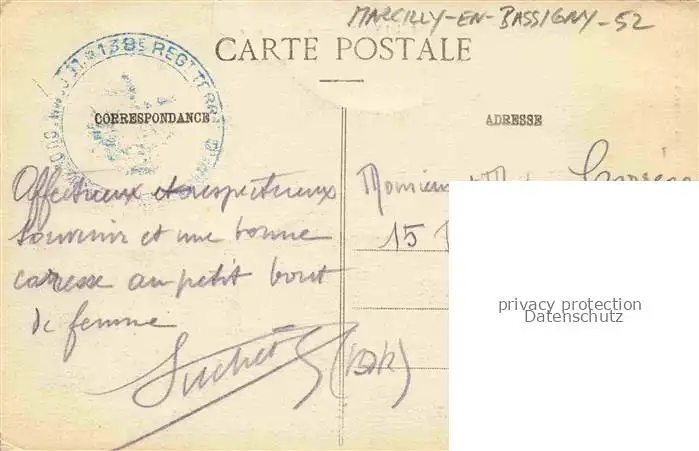 MARCILLY-EN-BASSIGNY-52
CARTE POSTALE
138e REGT TERR
CORRESPONDANCE
ADRESSE
Affectueux et respectueux
souvenir et une bonne
caresse au petit bout
de femme
Suchet
Monsieur
15
privacy protection
Datenschutz